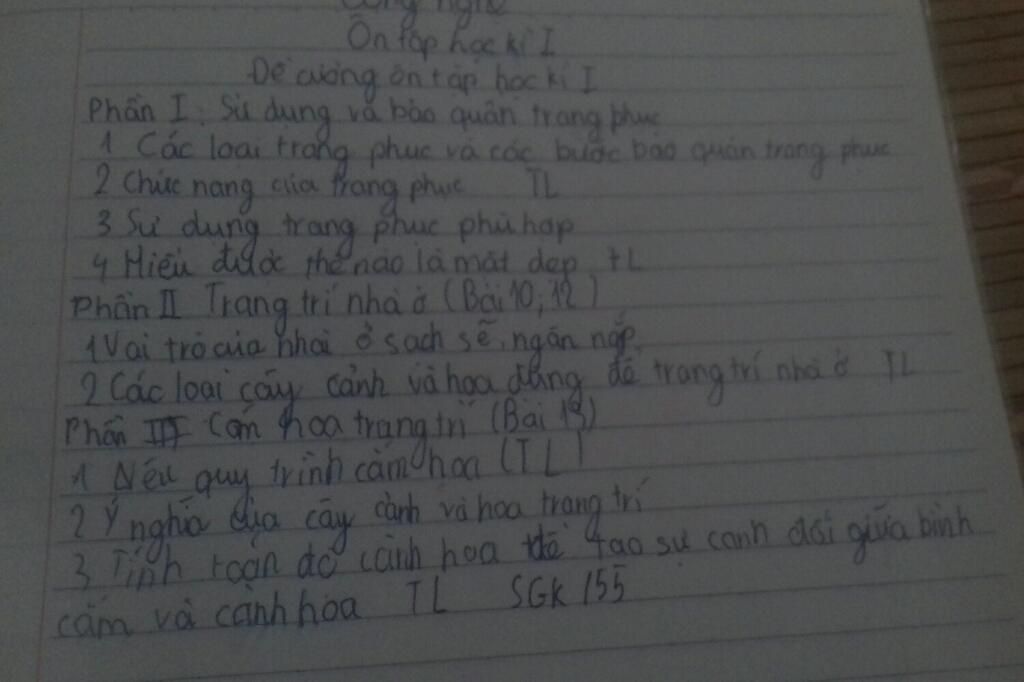 Công nghệ
Ôn tập học kì I
Đề cương ôn tập học kì I
Phần I: Sử dụng và bảo quản trang phục
1 Các loại trang phục và các bước bảo quản trang phục
2 Chức năng của trang phục TL
3 Sử dụng trang phục phù hợp
4 Hiểu được thế nào là mặt đẹp TL
Phần II Trang trí nhà ở (Bài 10, 12)
1 Vai trò của nhà ở sạch sẽ, ngăn nắp
2 Các loại cây cảnh và hoa dùng để trang trí nhà ở TL
Phần III Cắm hoa trang trí (Bài 13)
1 Nêu quy trình cắm hoa (TL)
2 Ý nghĩa của cây cảnh và hoa trang trí
3 Tính toán độ cành hoa để tạo sự canh đối giữa bình
cắm và cành hoa TL SGK 155